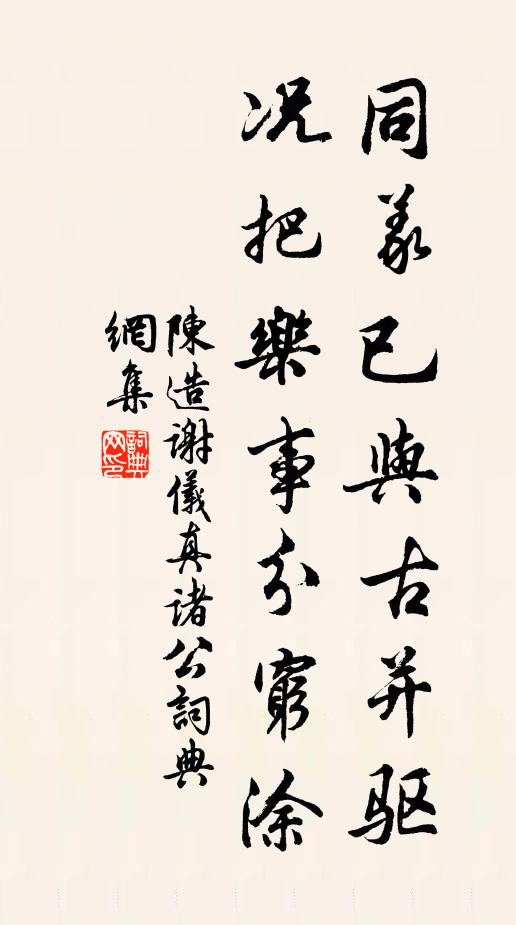 同義已與古并驱
况把樂事分窮涂
陳造謝儀真诸公詞典
網集
詞典網印